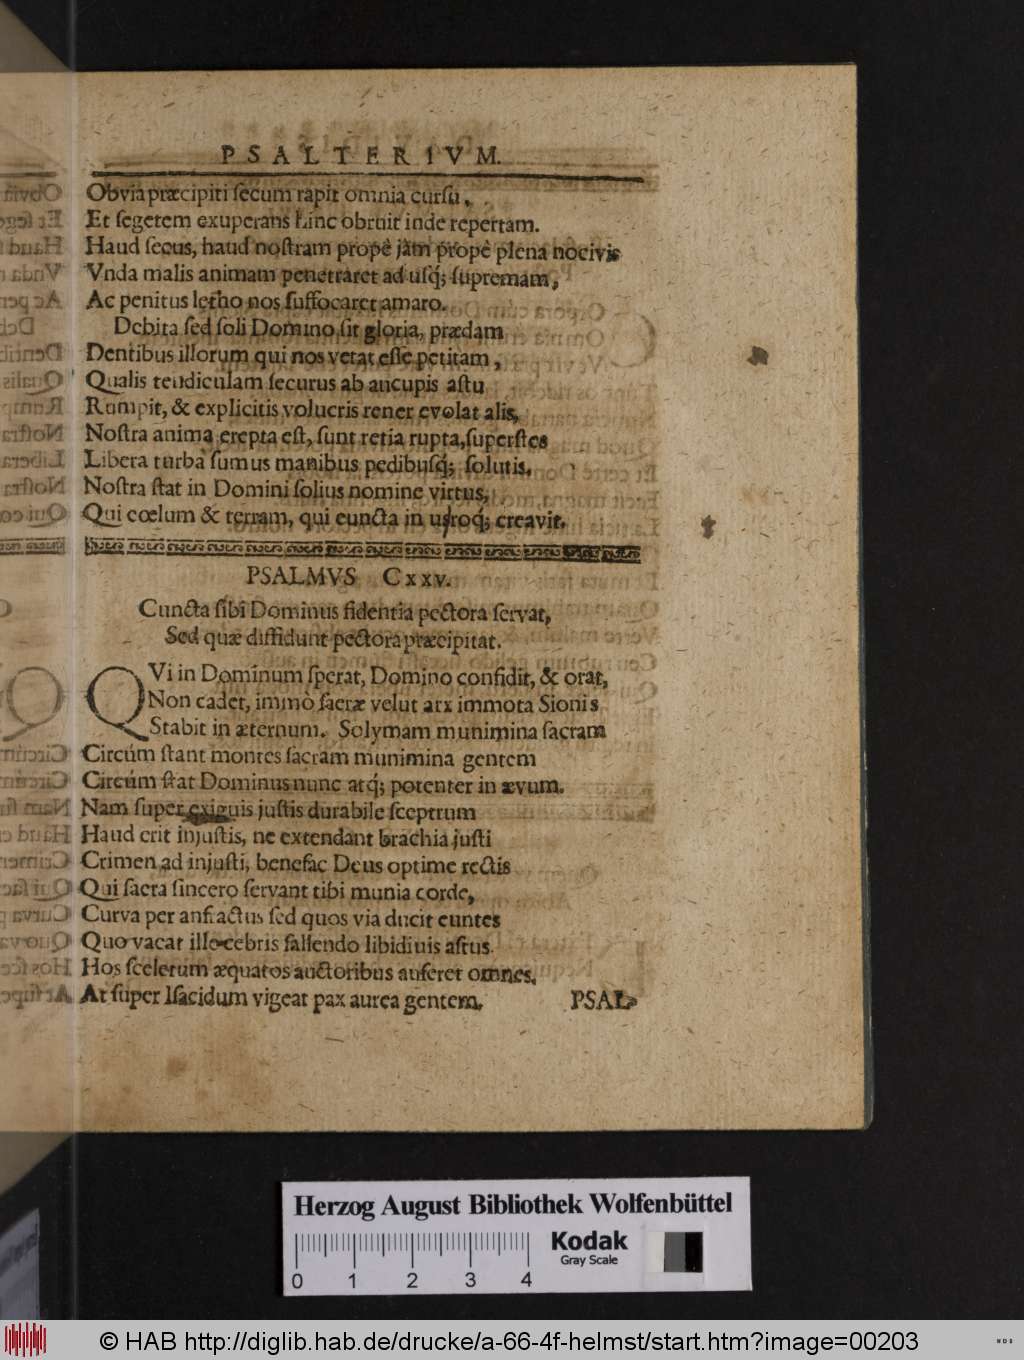 PSALTERIVM.
Obvia præcipiti ſecum rapit omnia curſu,
Et ſegetem exuperans hinc obruit inde repertam.
Haud ſecus, haud noſtram propè jàm propè plena nocivis
Vnda malis animam penetraret ad uſq́; ſupremam,
Ac penitus letho nos ſuffocaret amaro.
Debita ſed ſoli Domino ſit gloria, prædam
Dentibus illorum qui nos vetat eſſe petitam,
Qualis tendiculam ſecurus ab aucupis aſtu
Rumpit, & explicitis volucris tener evolat alis,
Noſtra anima erepta eſt, ſunt retia rupta, ſuperſtes
Libera turba ſumus manibus pedibuſq́; ſolutis.
Noſtra ſtat in Domini ſolius nomine virtus,
Qui cœlum & terram, qui cuncta in utroq́; creavit.
PSALMVS Cxxv.
Cuncta ſibi Dominus fidentia pectora ſervat,
Sed quæ diffidunt pectora præcipitat.
QVi in Dominum ſperat, Domino confidit, & orat,
Non cadet, immò ſacræ velut arx immota Sionis
Stabit in æternum. Solymam munimina ſacram
Circúm ſtant montes ſacram munimina gentem
Circúm ſtat Dominus nunc atq́; potenter in ævum.
Nam ſuper exiguis juſtis durabile ſceptrum
Haud erit injuſtis, ne extendant brachia juſti
Crimen ad injuſti, benefac Deus optime rectis
Qui ſacra ſincero ſervant tibi munia corde,
Curva per anfractus ſed quos via ducit euntes
Quo vacat illecebris fallendo libidinis aſtus.
Hos ſcelerum æquatos auctoribus auferet omnes,
At ſuper Iſacidum vigeat pax aurea gentem.
PSAL-
Herzog August Bibliothek Wolfenbüttel
Kodak
Gray Scale
0 1 2 3 4
© HAB http://diglib.hab.de/drucke/a-66-4f-helmst/start.htm?image=00203